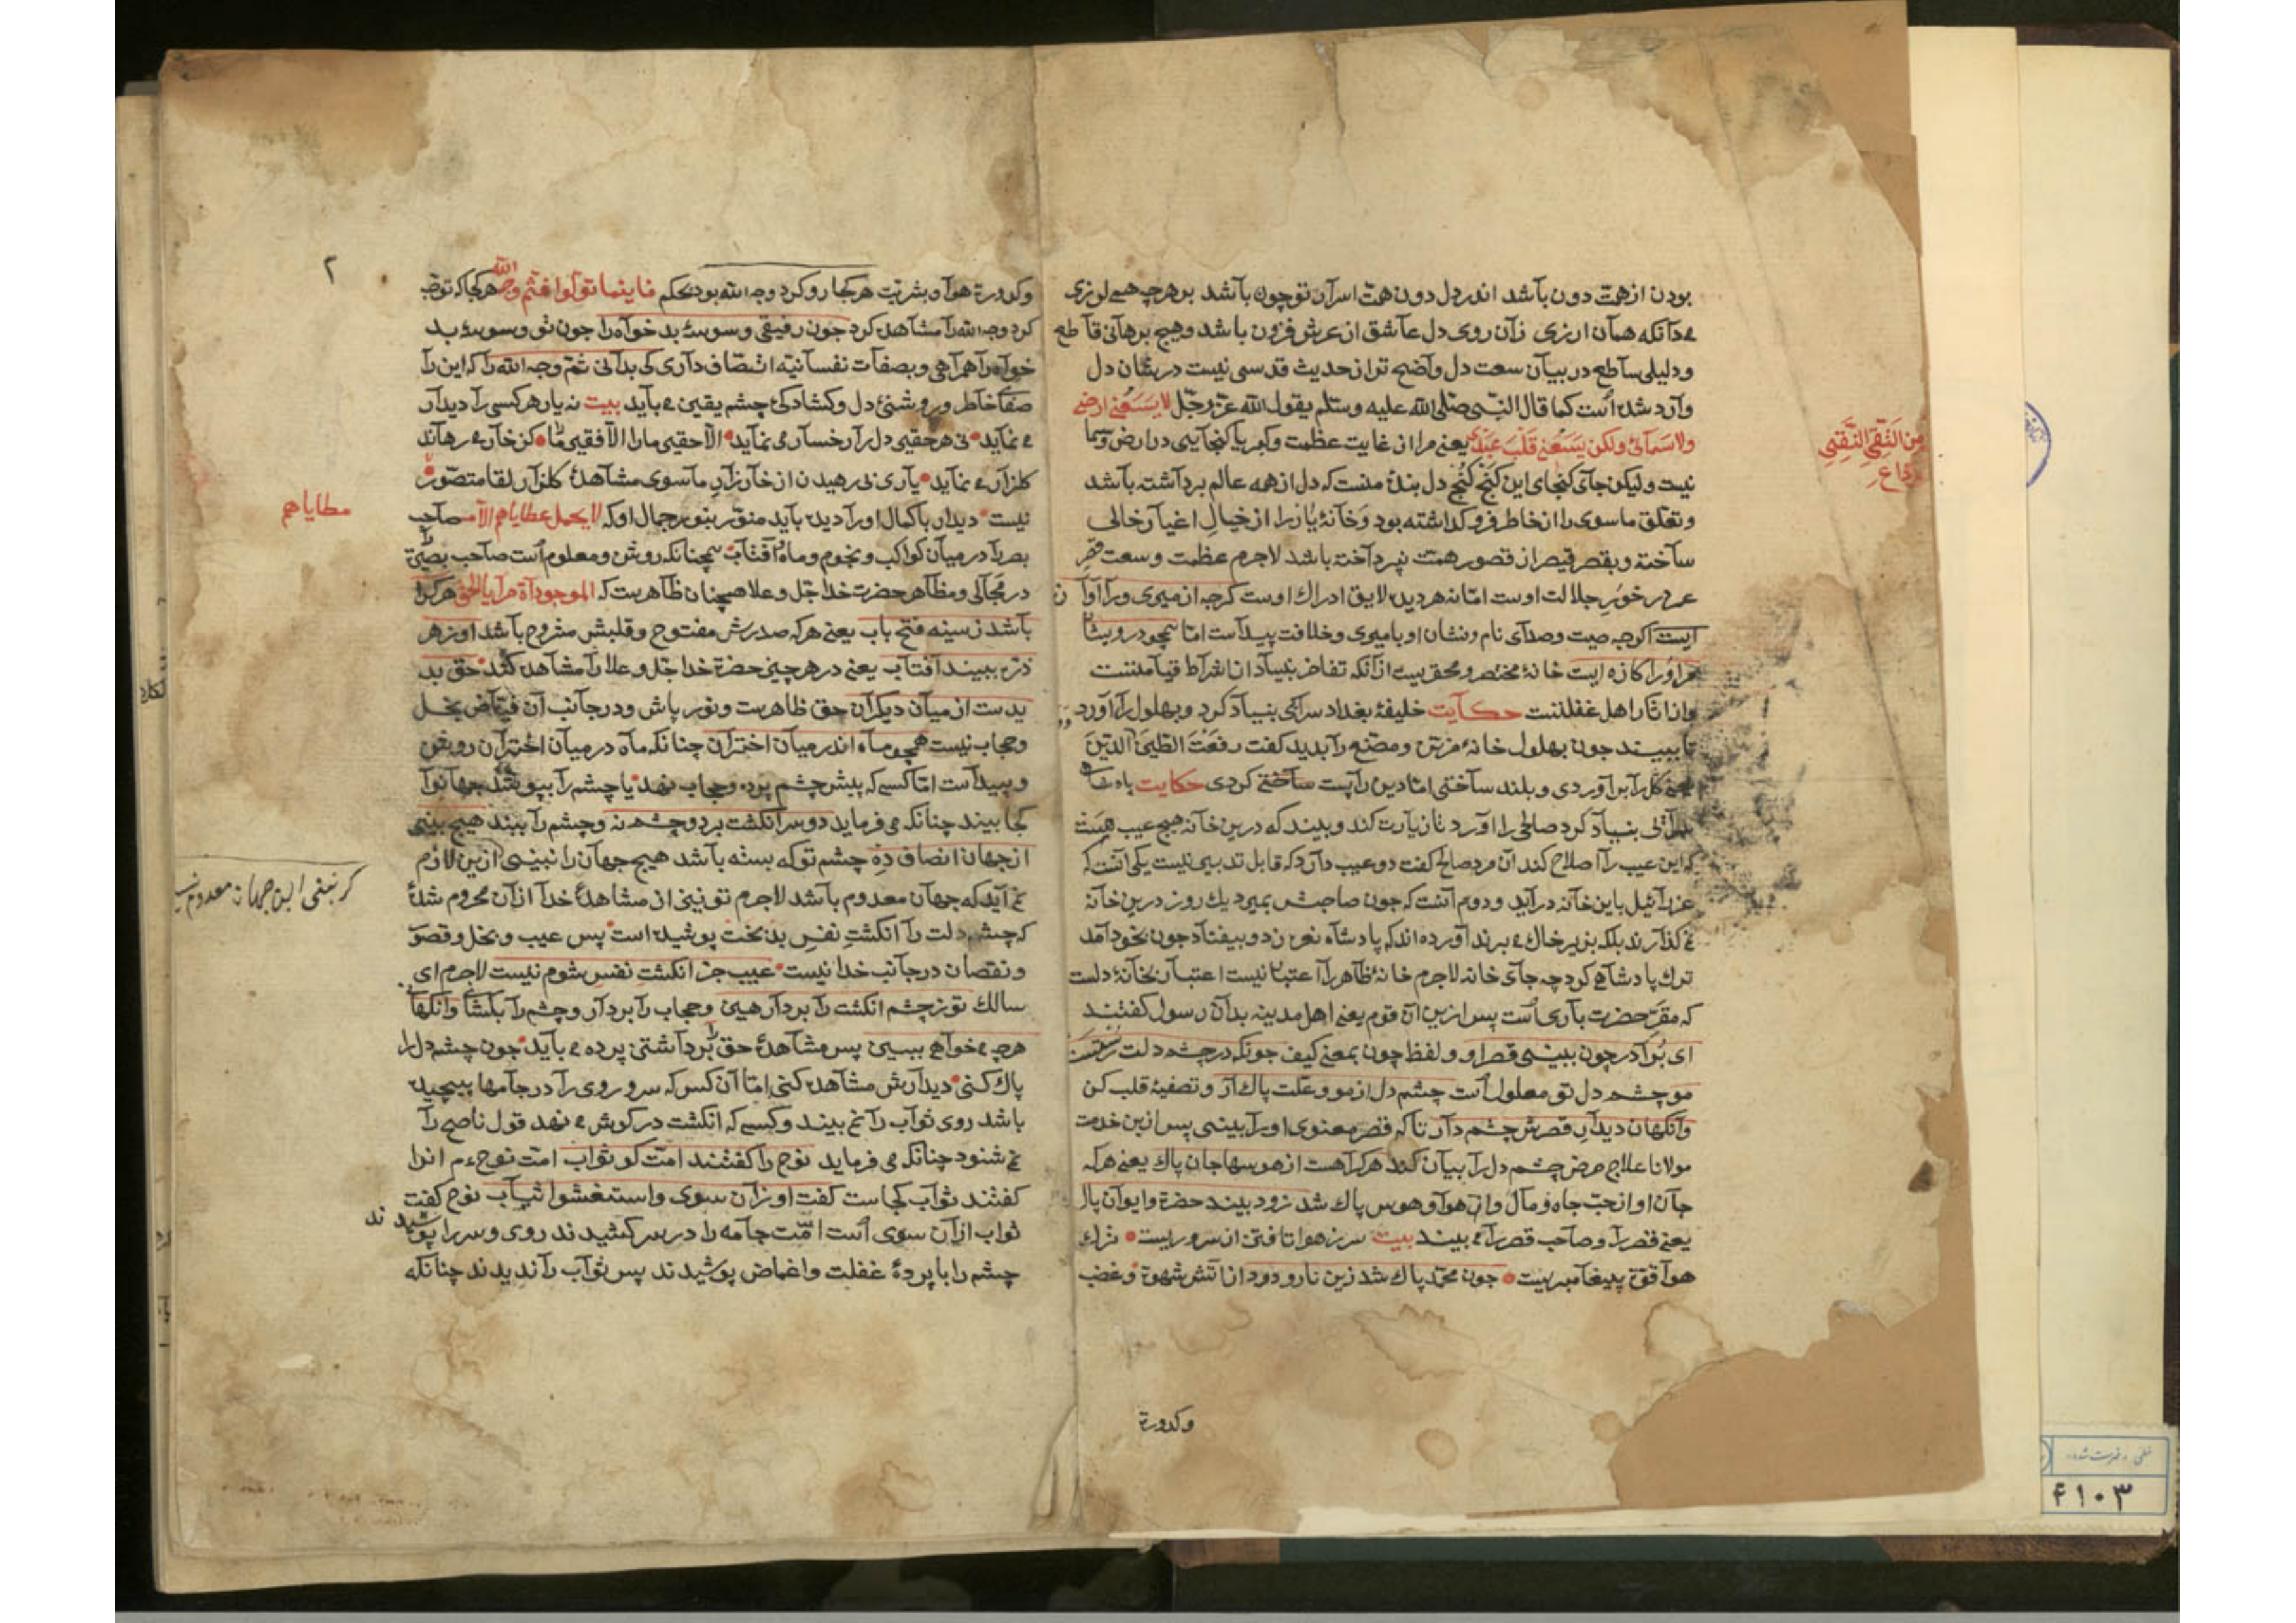 بودن از همت دون باشد اندر دل دون همت اسرار تو چون باشد بر هرچه همی لرزی
می دانکه همان ارزی زان روی دل عاشق از عرش فزون باشد وهیچ برهانی قاطع
ودلیلی ساطع در بیان سعت دل واضح تر از حدیث قدسی نیست در شان دل
وارد شده است کما قال النبی صلی الله علیه وسلم یقول الله عز وجل لا یسعنی ارضی
ولا سمائی ولکن یسعنی قلب عبدی یعنی مرا از غایت عظمت وکبریا کنجایی در ارض وسما
من التقی النقی
نیست ولیکن جای کنجای این کنج کنج دل بندۀ منست که دل از همه عالم برداشته باشد
وتعلق ماسوی را از خاطر فرو کداشته بود وخانۀ یار را از خیال اغیار خالی
ساخته وبقصر قیصر از قصور همت نپرداخته باشد لاجرم عظمت وسعت قصر
عمر در خور جلالت اوست اما نه هر دیده لایق ادراک اوست کرچه از میری ورا آوازه
ایست اکرچه صیت وصدای نام ونشان او بامیری وخلافت پیداست اما همچو درویشان
مر اورا کازه ایست خانۀ مختصر ومحقریست از آنکه تفاخر ببنیاد از اشراط قیامتست
واز آثار اهل غفلتست حکایت خلیفۀ بغداد سرایی بنیاد کرد وبهلول را آورد
تا ببیند چون بهلول خانۀ مزین ومصنع را بدید کفت رفعت الطین الدین
یعنی کل را برآوردی وبلند ساختی اما دین را پست ساختی کردی حکایت پادشاه
سرایی بنیاد کرد صالحی را آورد تا زیارت کند وببیند که درین خانه هیچ عیب هست
که این عیب را اصلاح کند آن مرد صالح کفت دو عیب دارد که قابل تدبیر نیست یکی آنست که
عزرائیل باین خانه درآید ودوم آنست که چون صاحبش بمیرد یک روز درین خانه
نمی کذارند بلکه بزیر خاک می برند آورده اند که پادشاه نعره زد وبیفتاد چون بخود آمد
ترک پادشاهی کرد چه جای خانه لاجرم خانۀ ظاهر را اعتبار نیست اعتبار بخانۀ دلست
که مقر حضرت باری است پس ازین آن قوم یعنی اهل مدینه بدان رسول کفتند
ای برادر چون ببینی قصر او ولفظ چون بمعنی کیف چونکه در چشم دلت رستست
مو چشم دل تو معلول است چشم دل از مو وعلت پاک آر وتصفیۀ قلب کن
وانکهان دیدار قصرش چشم دار تا که قصر معنوی اورا ببینی پس ازین خدمت
مولانا علاج مرض چشم دل را بیان کند هرکرا هست از هوسها جان پاک یعنی هرکه
جان او از حب جاه ومال واز هوا وهوس پاک شد زود بیند حضرة وایوان پاک
یعنی قصر را وصاحب قصر را می بیند بیت سر ز هوا تافتن از سروریست ترک
هوا قوة پیغامبریست چون محمد پاک شد زین نار ودود از آتش شهوة وغضب
وکدورة
۲
وکدورة هوا وبشریت هر کجا رو کرد وجه الله بود بحکم فاینما تولوا فثم وجه الله هر کجا که توجه
کرد وجه الله را مشاهده کرد چون رفیقی وسوسۀ بدخواه را چون تو وسوسۀ بد
خواه را همراهی وبصفات نفسانیه اتصاف داری کی بدانی ثم وجه الله را که این را
صفا خاطر وروشنئ دل وکشادکئ چشم یقین می باید بیت نه یار هر کسی را دیدار
می نماید نی هر حقیر دل را رخسار می نماید الا حقیر ما را الا فقیر ما را کز خار می رهاند
کلزار می نماید یاری نی رهیدن از خار زار ماسوی مشاهدۀ کلزار لقا متصور
نیست دیدار باکمال او را دیده باید منور بنور جمال او که لا یحمل عطایاهم الا مـ صاحب
مطایاهم
بصر را در میان کواکب ونجوم وماه وآفتاب همچنانکه روشن ومعلوم است صاحب بصیرة را
در مجالی ومظاهر حضرت خدا جل وعلا همچنان ظاهرست که الموجوداة مرایا الحق هرکرا
باشد ز سینه فتح باب یعنی هرکه صدرش مفتوح وقلبش مشروح باشد او ز هر
ذره ببیند آفتاب یعنی در هر چیزی حضرة خدا جل وعلا را مشاهده کند حق پد
یدست از میان دیکران حق ظاهرست ونور پاش ودر جانب آن فیاض بخل
وحجاب نیست همچو ماه اندر میان اختران چنانکه ماه در میان اختران روشن
وپیداست اما کسی که پیش چشم پرده وحجاب نهد یا چشم را بپوشد جهانرا
کجا بیند چنانکه می فرماید دو سر انکشت بر دو چشم نه وچشم را ببند هیچ بینی
از جهان انصاف ده چشم تو که بسته باشد هیچ جهان را نبینی ازین لازم
کر نبینی این جهان معدوم نیست
نمی آید که جهان معدوم باشد لاجرم تو نیز از مشاهدۀ خدا از آن محروم شدۀ
که چشم دلت را انکشت نفس بدبخت پوشیده است پس عیب وبخل وقصور
ونقصان در جانب خدا نیست عیب جز انکشت نفس شوم نیست لاجرم ای
سالک تو ز چشم انکشت را بردار هین وحجاب را بردار وچشم را بکشا وانکهانی
هرچه می خواهی ببین پس مشاهدۀ حق را برداشتن پرده می باید چون چشم دل را
پاک کنی دیدارش مشاهده کنی اما آن کس که سر وروی را در جامها پیچیده
باشد روی ثواب را نمی بیند وکسی که انکشت در کوش می نهد قول ناصح را
نمی شنود چنانکه می فرماید نوح را کفتند امت کو ثواب امت نوح ع م اورا
کفتند ثواب کجاست کفت او زان سوی واستغشوا ثیاب نوح کفت
ثواب از آن سوی است امت جامه را در سر کشیدند روی وسر را پوشیدند
چشم را با پردۀ غفلت واغماض پوشیدند پس ثواب را ندیدند چنانکه
خطی فهرست شده
۴۱۰۳